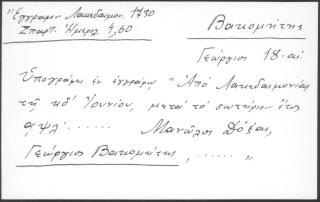 "Έγγραφον Λακεδαιμον. 1730
Σπαρτ. Ημερολ 1,60
Βατομήτης
Γεώργιος 18. αι.
Υπογράφει εν εγγράφω "Από Λακεδαιμονίας
τη κδ' Ιουνίου, μετά το σωτήριον έτος
αψλ'...... Μανώλης Δόξας,
Γεώργιος Βατομήτης, ...... "